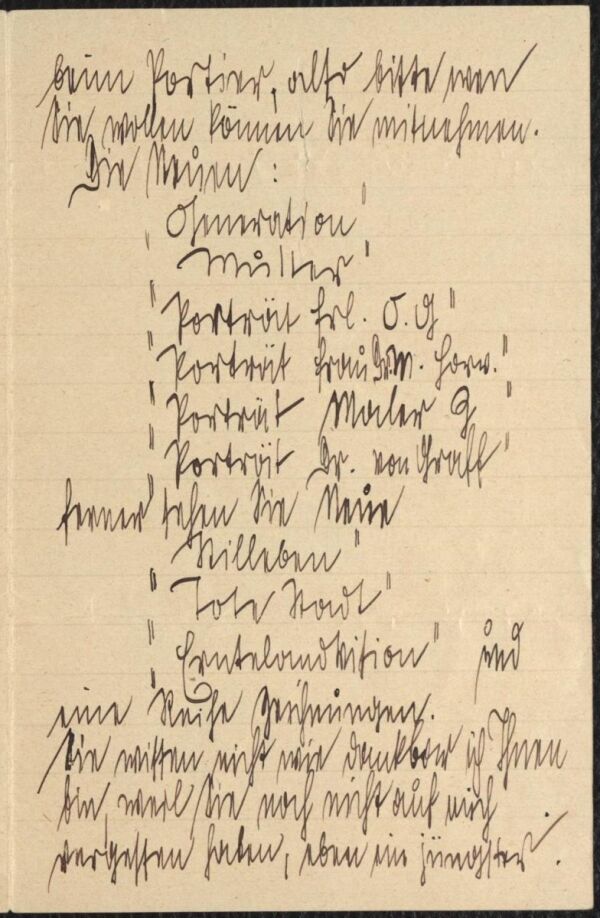 beim Portier, also bitte wen
Sie wollen können Sie mitnehmen.
Die Neuen:
„Generation"
Mutter"
"Porträt Frl. O. G"
"Porträt Frau Dr. M. Horv."
"Porträt Maler G"
"Porträt Dr. von Graff"
ferner sehen Sie Neue
Stilleben"
"Tote Stadt"
"Erntelandvision" und
eine Reihe Zeichnungen.
Sie wissen nicht wie dankbar ich Ihnen
bin, weil Sie noch nicht auf mich
vergessen haben, eben ein jüngster.